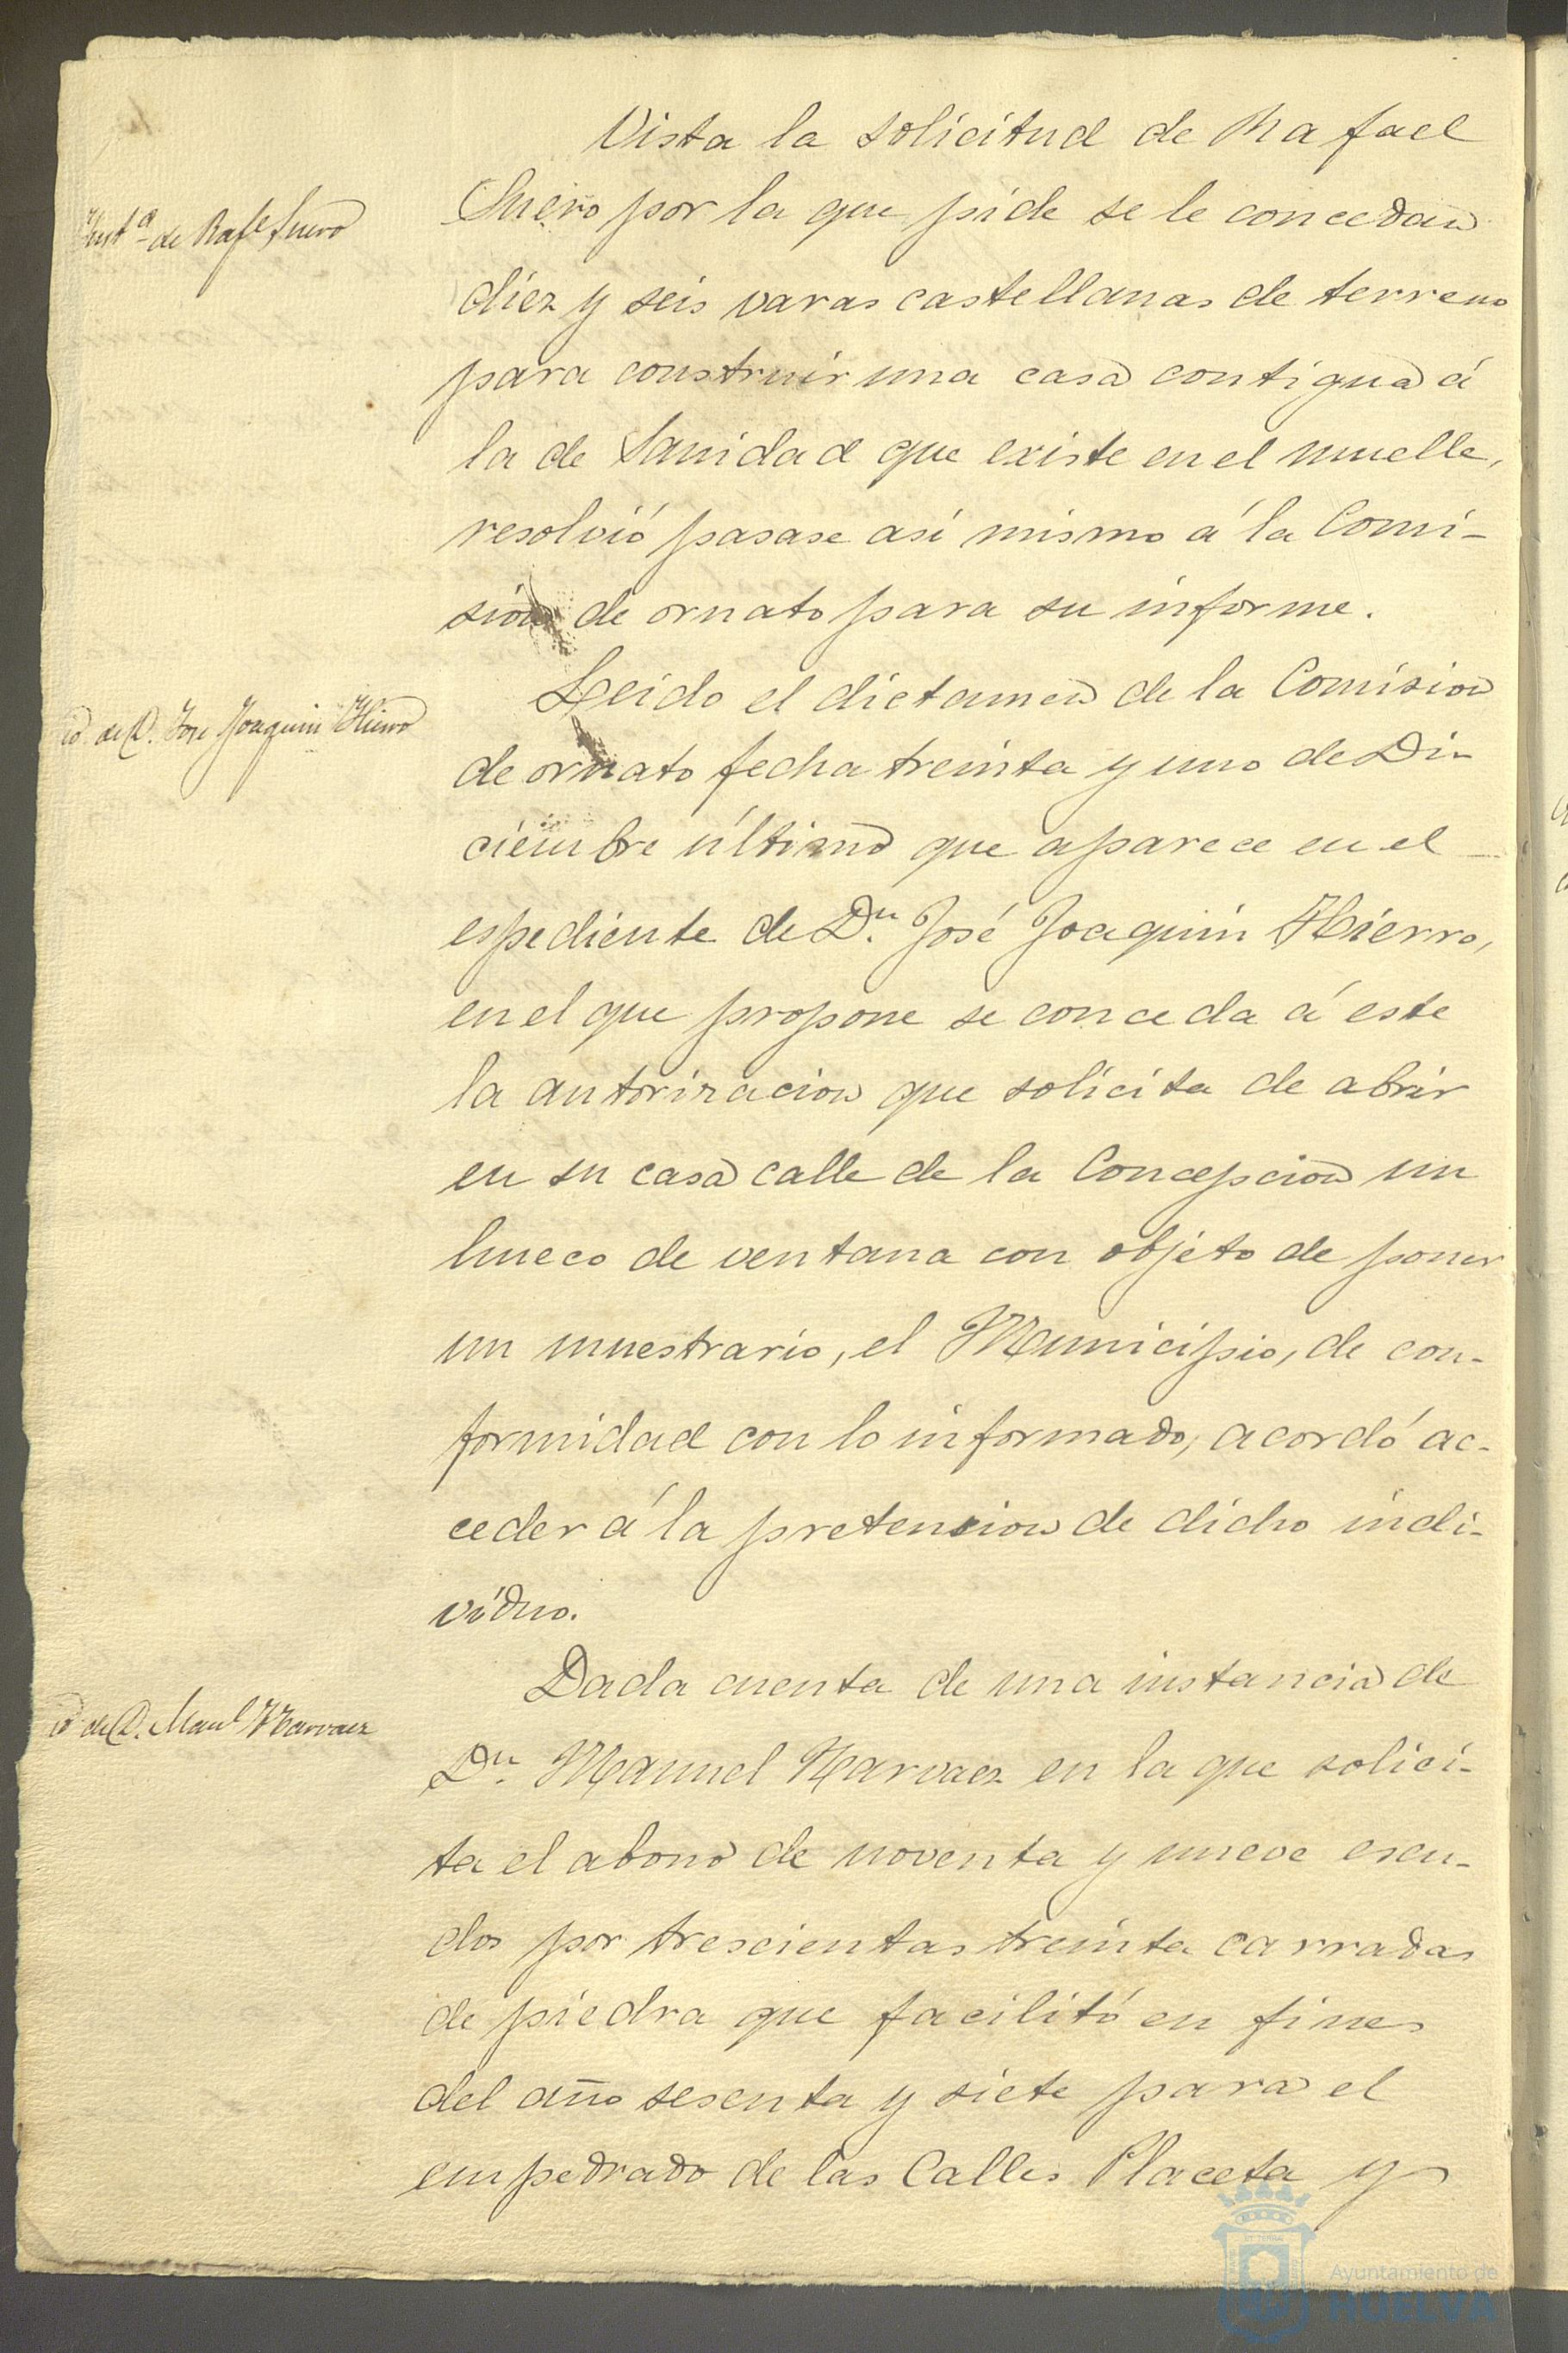 Vista la solicitud de Rafael
Inst.ª de Raf.l Suero
Suero por la que pide se le concedan
diez y seis varas castellanas de terreno
para construir una casa contigua á
la de Sanidad que existe en el muelle,
resolvió pasase asi mismo á la Comi-
sion de ornato para su informe.
id. de D. Jose Joaquin Hierro
Leido el dictamen de la Comision
de ornato fecha treinta y uno de Di-
ciembre último que aparece en el
espediente de D.n José Joaquin Hierro,
en el que propone se conceda á este
la autorizacion que solicita de abrir
en su casa calle de la Concepcion un
hueco de ventana con objeto de poner
un muestrario, el Municipio, de con-
formidad con lo informado, acordó ac-
ceder á la pretension de dicho indi-
viduo.
Dada cuenta de una instancia de
id de D. Man.l Narvaez
D.n Manuel Narvaez en la que solici-
ta el abono de noventa y nueve escu-
dos por trescientas treinta carradas
de piedra que facilitó en fines
del año sesenta y siete para el
empedrado de las Calles Placeta y
Ayuntamiento de
HUELVA